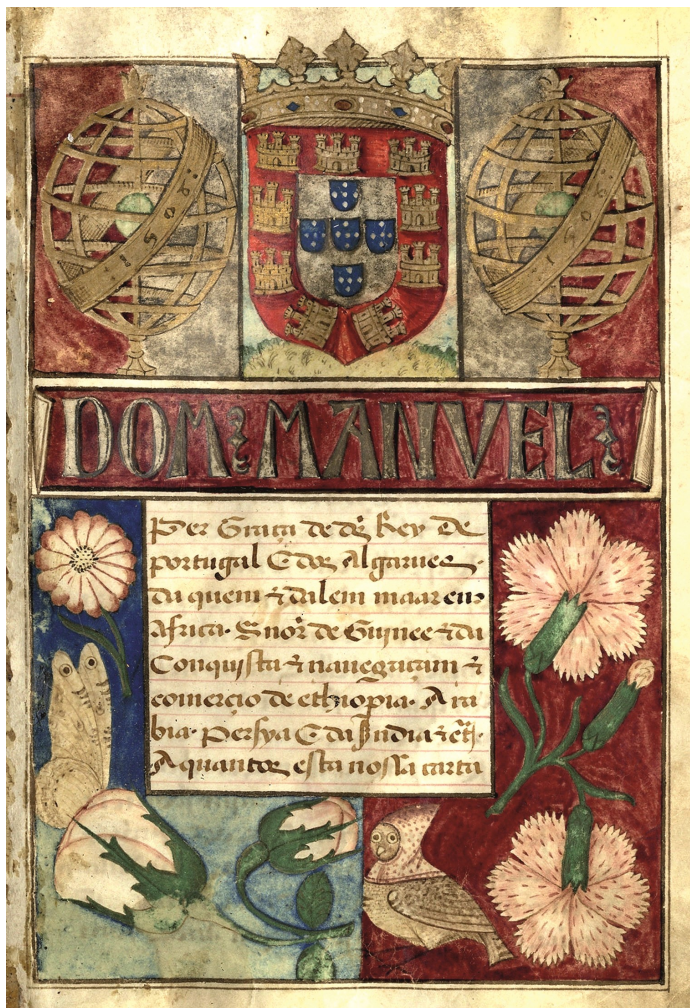 1508
1508
DOM: MANVEL:
Per Graça de ds Rey De
portugal E dos Algarues.
da quem & dalem maar en
Africa. Snor de Guinee & da
Conquista & nauegaçam &
comerçio de ethiopia. Ara
bia. Persya E da Jndia & etc.
A quantos esta nossa carta